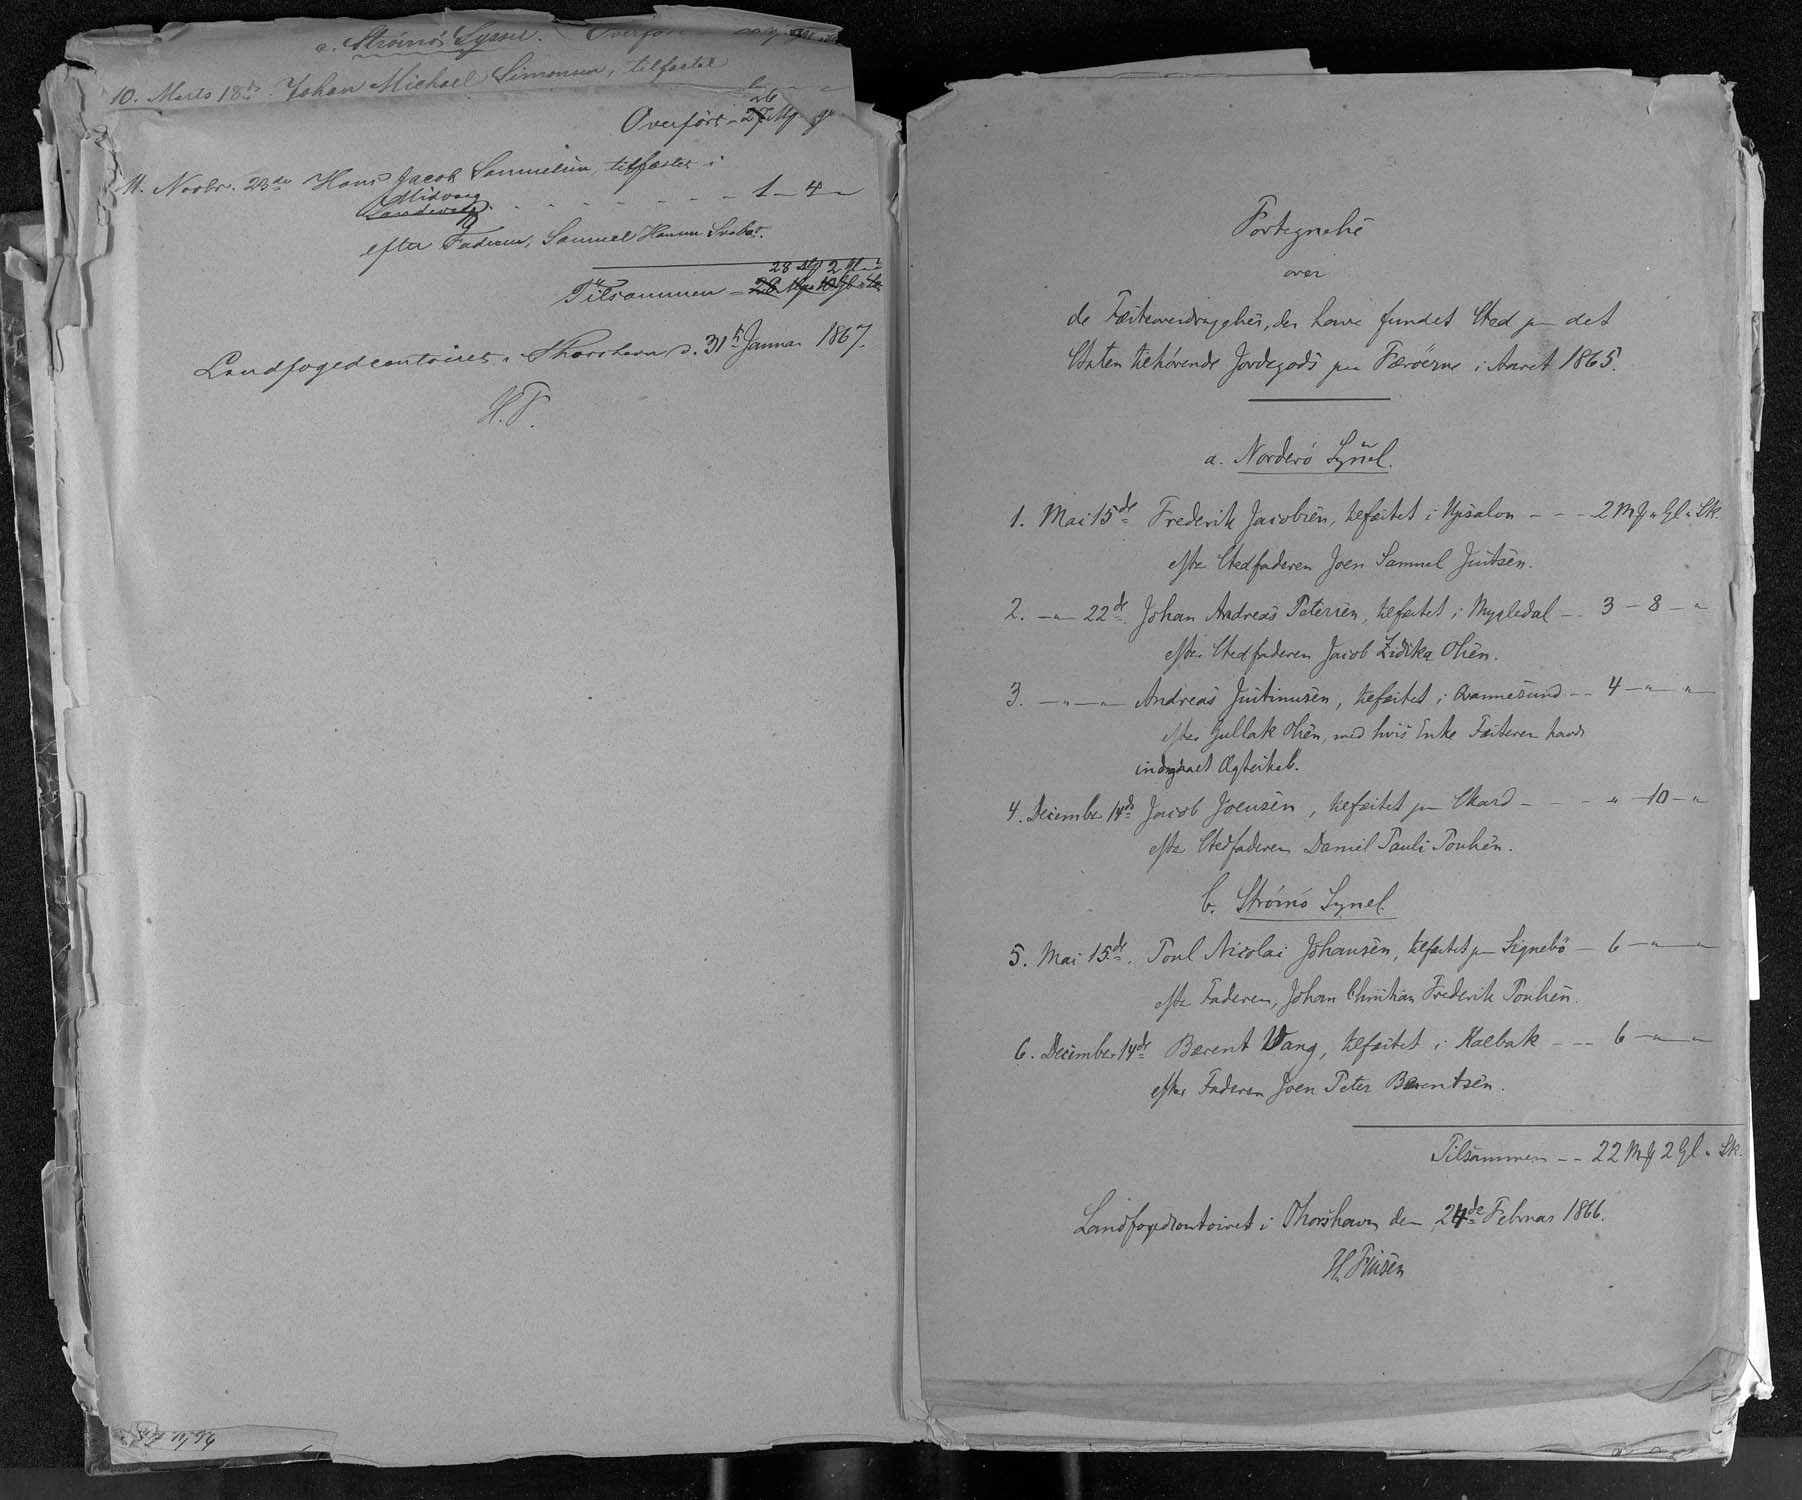 c. Strömö Syssel. Overført
10. Marts 18de. Johan Michael Simonsen, tilfæstet
Overført - 26 Mk
11. Novbr. 23de Hans Jacob Samuelsen, tilfæstet i
Midvaag
Sandevaag - - - - - - - 1 - 4 - "
efter Faderen, Samuel Hansen
28 Mk 2 Gl "
Tilsammen - 26 Mk 10 Gl
Landfogedcontoiret i Thorshavn d. 31te Januar 1867.
H. F.
Fortegnelse
over
de Fæsteoverdragelser, der have fundet Sted paa det
Staten tilhørende Jordegods paa Færöerne i Aaret 1865.
a. Norderö Syssel.
1. Mai 15de Frederik Jacobsen, tilfæstet i Ypsalon - - - 2 Mk " Gl " Sk.
efter Stedfaderen Joen Samuel Justsen.
2. - " - 22de Johan Andreas Petersen, tilfæstet i Mygledal - - 3 - 8 - "
efter Stedfaderen Jacob Zidika Olsen.
3. - " - " - Andreas Justinusen, tilfæstet i Qvannesund - - 4 - " - "
efter Gullak Olsen, med hvis Enke Fæsteren havde
indgaaet Ægteskab.
4. December 14de Jacob Joensen, tilfæstet paa Skard - - - " - 10 - "
efter Stedfaderen Daniel Pauli Poulsen.
b. Strömö Syssel.
5. Mai 15de. Poul Nicolai Johansen, tilfæstet paa Signebö - 6 - " - "
efter Faderen, Johan Christian Frederik Poulsen.
6. December 14de Bærent Wang, tilfæstet i Kalbak - - - 6 - " - "
efter Faderen Joen Peter Berentsen.
Tilsammen - - 22 Mk 2 Gl " Sk.
Landfogedcontoiret i Thorshavn den 24de Februar 1866.
H. Finsen